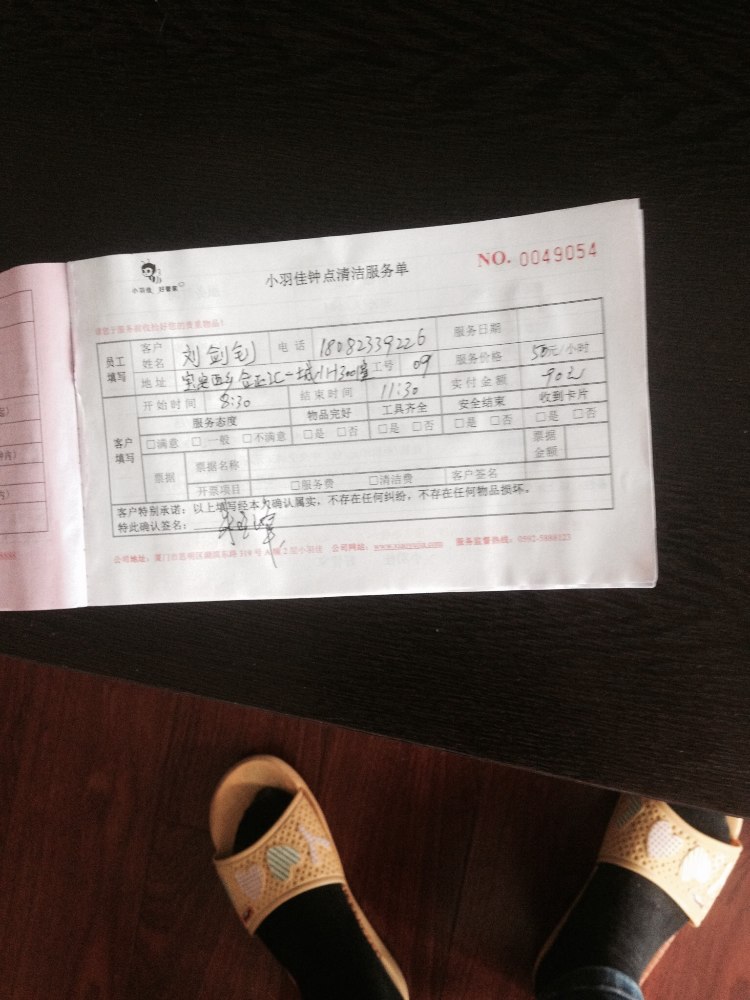 小羽佳 好管家
小羽佳钟点清洁服务单
NO. 0049054
请您于服务前收拾好您的贵重物品!
员工填写 客户姓名 刘剑钊 电话 18082339226 服务日期
地址 宝安西乡 工号 09 服务价格 50元/小时
开始时间 8:30 结束时间 11:30 实付金额 90元
客户填写 服务态度 物品完好 工具齐全 安全结束 收到卡片
□满意 □一般 □不满意 □是 □否 □是 □否 □是 □否 □是 □否
票据 票据名称 票据金额
开票项目 □服务费 □清洁费 客户签名
客户特别承诺:以上填写经本人确认属实,不存在任何纠纷,不存在任何物品损坏。
特此确认签名:
公司地址:厦门市思明区湖滨东路319号A幢2层小羽佳 公司网站: 服务监督热线:0592-5888123